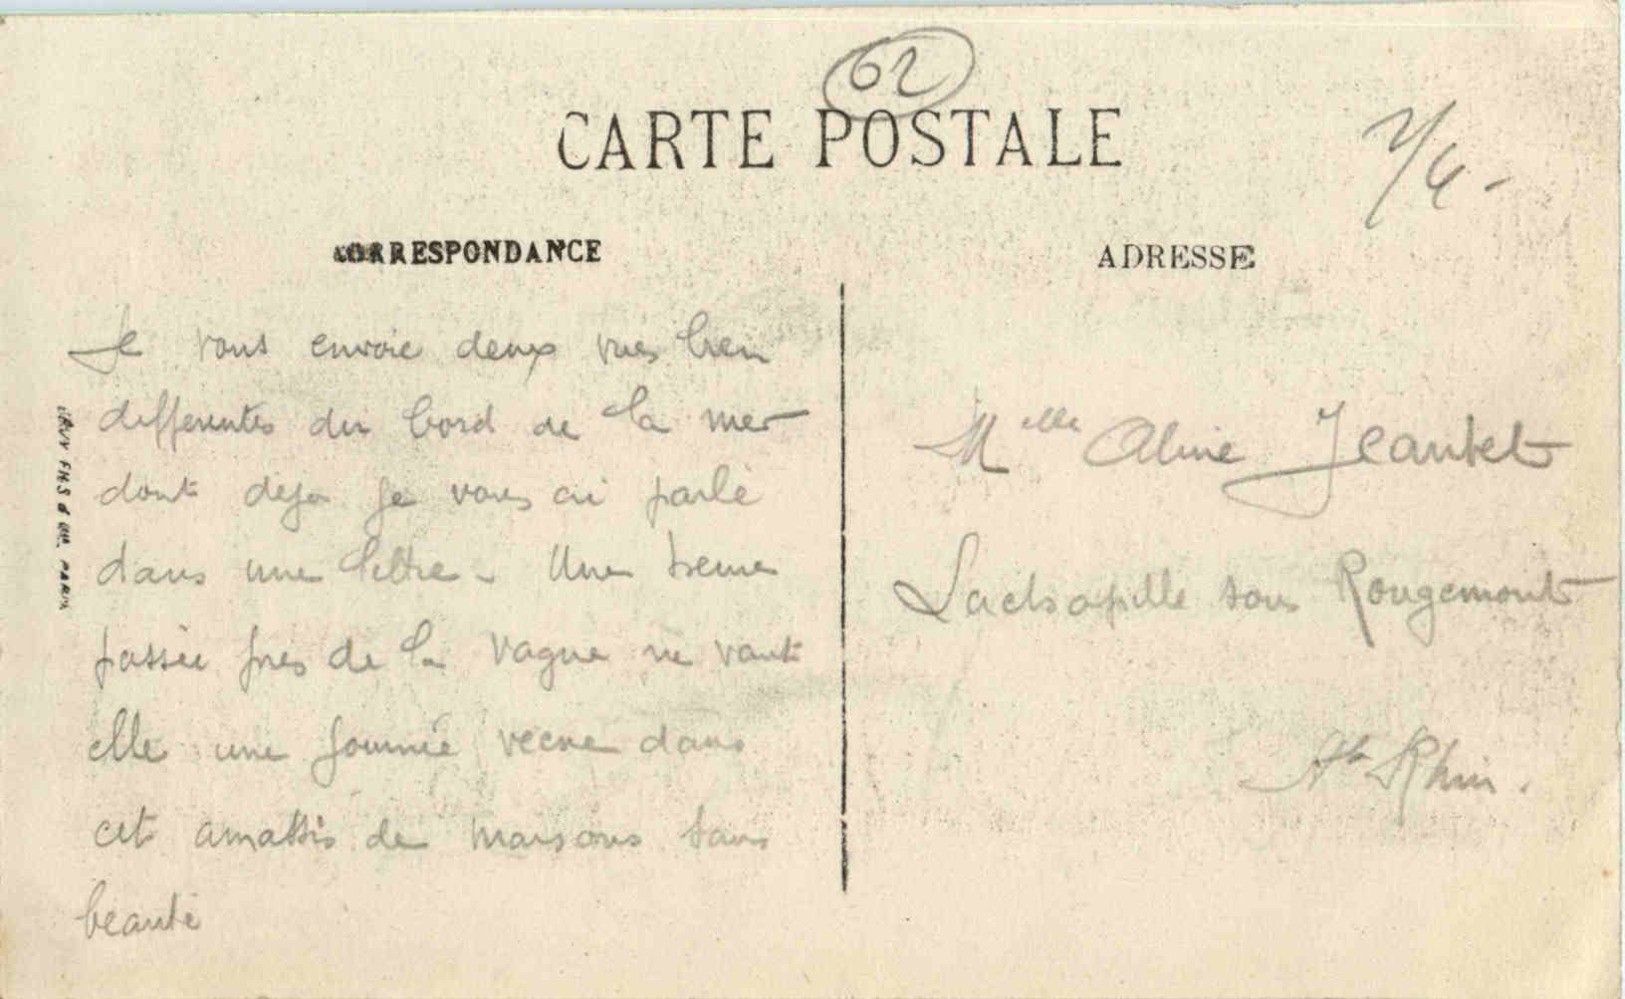 62
CARTE POSTALE
CORRESPONDANCE
Je vous envoie deux vues bien
differentes du bord de la mer
dont deja je vous ai parlé
dans une lettre. Une heure
passée pres de la vague ne vaut
elle une journée vecue dans
cet amassis de maisons sans
beauté
ADRESSE
Melle Aline Jeantet
Lachapelle sous Rougemont
Ht Rhin.
PARIS